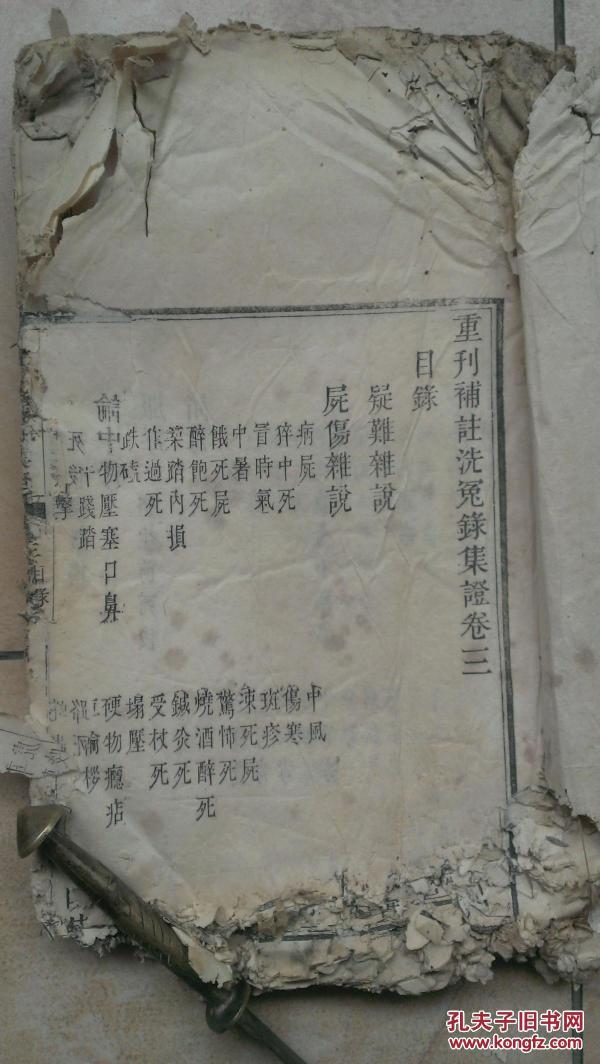 重刊補註洗冤錄集證卷三
目錄
疑難雜說
屍傷雜說
病屍
中風
猝中死
傷寒
冒時氣
斑疹
中暑
凍死屍
餓死屍
驚怖死
醉飽死
燒酒醉死
築踏內損
鍼灸死
作過死
受杖死
跌磕
塌壓
物壓塞口鼻
硬物癮痁
踐踏
死
孔夫子旧书网
www.kongfz.com